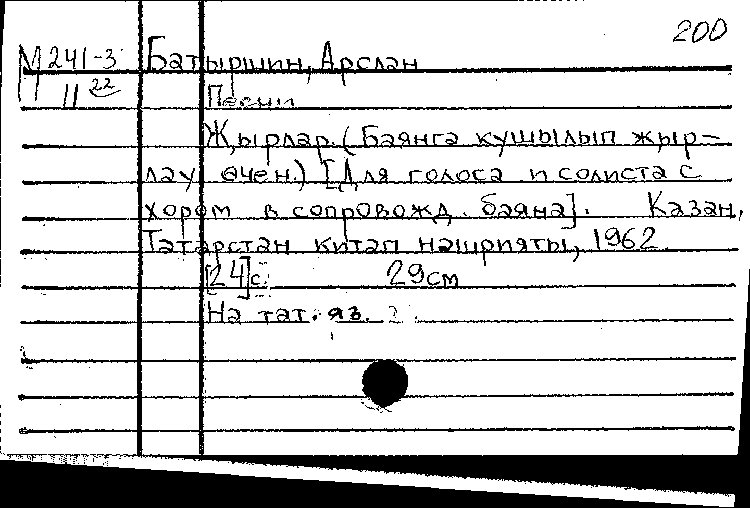 200
М 241-3 Батыршин, Арслан
11 22 Песни
Җырлар. (Баянга кушылып җыр-
лау өчен.) [Для голоса и солиста с
хором в сопровожд. баяна]. Казан,
Татарстан китап нашрияты, 1962
[24]с. 29см
На тат. яз.